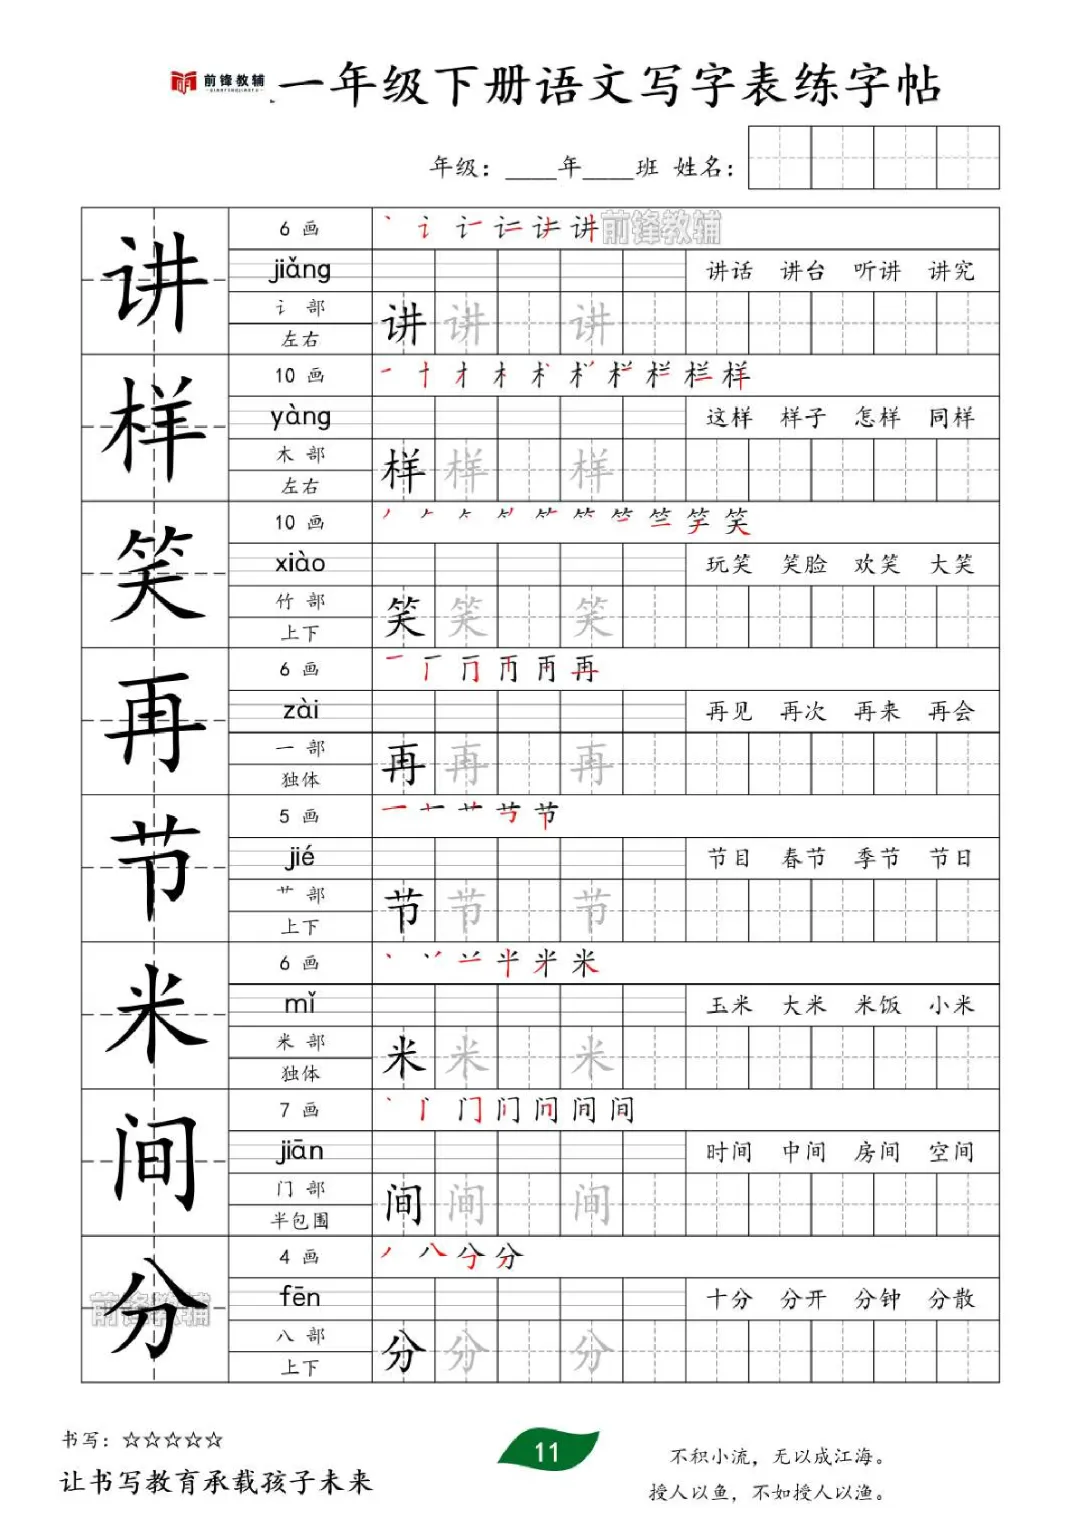 前锋教辅 一年级下册语文写字表练字帖
年级：____年____班 姓名：
讲
6 画
前锋教辅
jiǎng
讲话 讲台 听讲 讲究
讠 部
左右
讲 讲 讲
样
10 画
yàng
这样 样子 怎样 同样
木 部
左右
样 样 样
笑
10 画
xiào
玩笑 笑脸 欢笑 大笑
竹 部
上下
笑 笑 笑
再
6 画
zài
再见 再次 再来 再会
一 部
独体
再 再 再
节
5 画
jié
节目 春节 季节 节日
艹 部
上下
节 节 节
米
6 画
mǐ
玉米 大米 米饭 小米
米 部
独体
米 米 米
间
7 画
jiān
时间 中间 房间 空间
门 部
半包围
间 间 间
分
前锋教辅
4 画
fēn
十分 分开 分钟 分散
八 部
上下
分 分 分
书写：☆☆☆☆☆
让书写教育承载孩子未来
11
不积小流，无以成江海。
授人以鱼，不如授人以渔。